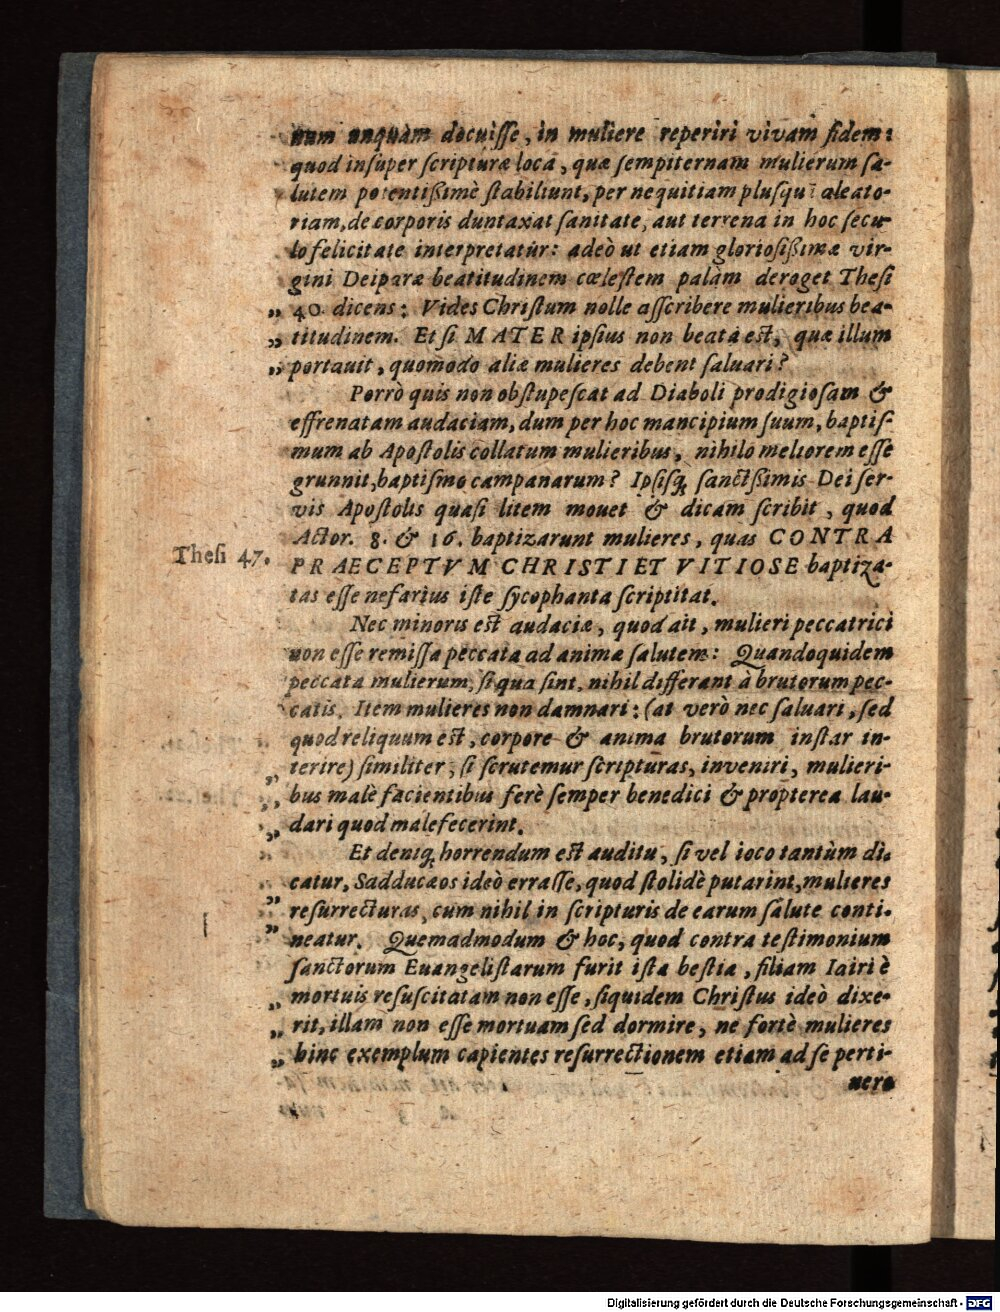 num unquàm docuisse, in muliere reperiri vivam fidem:
quod insuper scripturæ loca, quæ sempiternam mulierum sa-
lutem potentißimè stabiliunt, per nequitiam plusquā aleato-
riam, de corporis duntaxat sanitate, aut terrena in hoc secu-
lo felicitate interpretatur: adeò ut etiam gloriosißimæ vir-
gini Deiparæ beatitudinem cœlestem palàm deroget Thesi
„ 40. dicens: Vides Christum nolle asscribere mulieribus bea-
„ titudinem. Et si MATER ipsius non beata est, quæ illum
„ portauit, quomodo aliæ mulieres debent saluari?
Porrò quis non obstupescat ad Diaboli prodigiosam &
effrenatam audaciam, dum per hoc mancipium suum, baptis-
mum ab Apostolis collatum mulieribus, nihilo meliorem esse
grunnit, baptismo campanarum? Ipsisq; sanctßimis Dei ser-
vis Apostolis quasi litem mouet & dicam scribit, quod
Actor. 8. & 16. baptizarunt mulieres, quas CONTRA
Thesi 47. PRAECEPTVM CHRISTI ET VITIOSE baptiza-
tas esse nefarius iste sycophanta scriptitat.
Nec minoris est audaciæ, quod ait, mulieri peccatrici
non esse remissa peccata ad animæ salutem: Quandoquidem
peccata mulierum, si qua sint, nihil differant à brutorum pec-
catis. Item mulieres non damnari: (at verò nec saluari, sed
quod reliquum est, corpore & anima brutorum instar in-
„ terire) similiter, si scrutemur scripturas, inveniri, mulieri-
„ bus malè facientibus ferè semper benedici & propterea lau-
„ dari quod malefecerint.
Et deniq; horrendum est auditu, si vel ioco tantùm di-
„ catur, Sadducæos ideò errasse, quod stolidè putarint, mulieres
„ resurrecturas, cum nihil in scripturis de earum salute conti-
„ neatur. Quemadmodum & hoc, quod contra testimonium
sanctorum Euangelistarum furit ista bestia, filiam Iairi è
„ mortuis resuscitatam non esse, siquidem Christus ideò dixe-
„ rit, illam non esse mortuam sed dormire, ne fortè mulieres
„ hinc exemplum capientes resurrectionem etiam ad se perti-
nere
Digitalisierung gefördert durch die Deutsche Forschungsgemeinschaft - DFG